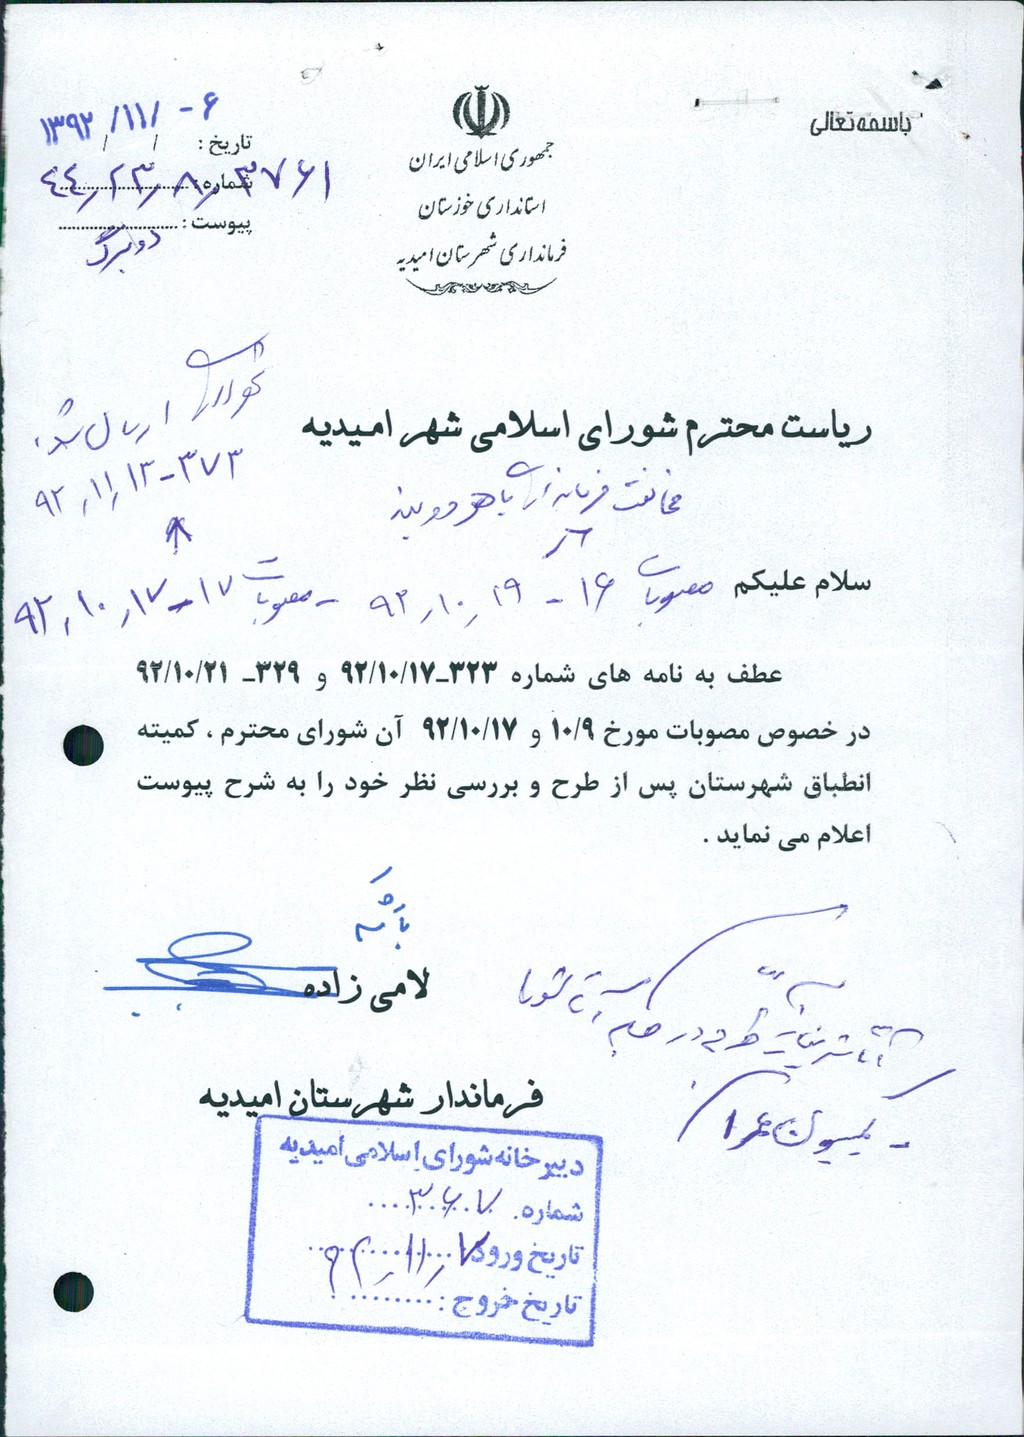 باسمه تعالی
جمهوری اسلامی ایران
استانداری خوزستان
فرمانداری شهرستان امیدیه
تاریخ : ۱۳۹۲/۱۱/۰۶
شماره : ۴۴/۲۳/۸/۳۷۶۱
پیوست : دو برگ
ارسال شد
۹۲/۱۱/۱۳-۳۷۳
ریاست محترم شورای اسلامی شهر امیدیه
مخالفت فرمانداری با هر دو بند
سلام علیکم
مصوبات ۱۶ - ۹۲/۱۰/۱۹ - مصوبات ۱۷-۹۲/۱۰/۱۷
عطف به نامه های شماره ۳۲۳-۹۲/۱۰/۱۷ و ۳۲۹- ۹۲/۱۰/۲۱
در خصوص مصوبات مورخ ۱۰/۹ و ۹۲/۱۰/۱۷ آن شورای محترم ، کمیته
انطباق شهرستان پس از طرح و بررسی نظر خود را به شرح پیوست
اعلام می نماید .
لامی زاده
فرماندار شهرستان امیدیه
طرح در
- کمیسیون عمران
دبیرخانه شورای اسلامی امیدیه
شماره. ۳۶۰۷
تاریخ ورود ۹۲/۱۱/۷
تاریخ خروج :